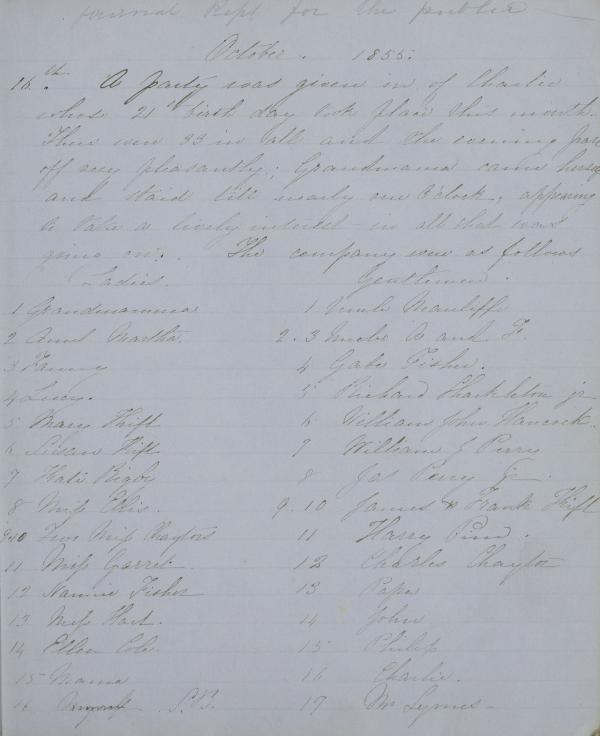 Journal Kept for the publick
October. 1855.
16th. A party was given in of Charlie
whose 21st birth day took place this month.
There were 33 in all and the evening pass
off very pleasantly; Grandmama came herse
and staid till nearly one O'clock, appearing
to take a lively interest in all that was
going on. The company were as follows
Ladies. Gentlemen.
1 Grandmamma 1 Uncle
2 Aunt Martha. 2. 3 Uncles A and F.
3 Fanny 4 Gabe Fisher.
4 Lucy. 5 Richard Shackleton jr
5 Mary Thift 6 William John Hancock.
6 Susan Thift 7 William J Perry
7 Kate Rigby 8 Jas Perry jr.
8 Miss Ellis. 9. 10 James & Frank Thift
9 10 Two Miss Chaytors 11 Harry
11 Miss Garret 12 Charles Chaytor
12 Nannie Fisher 13 Papa
13 Miss Hart. 14 John
14 Ellen Cole. 15 Philip
15 Mama 16 Charlie.
16 Myself S.B. 17 Mr Symes